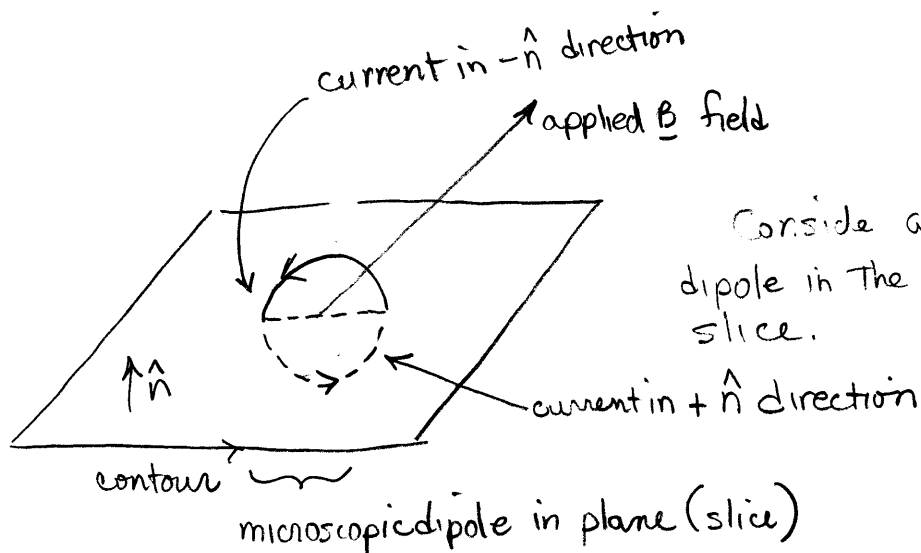 current in -n̂ direction
applied B field
Conside a
dipole in The
slice.
n̂
current in + n̂ direction
contour
microscopic dipole in plane (slice)